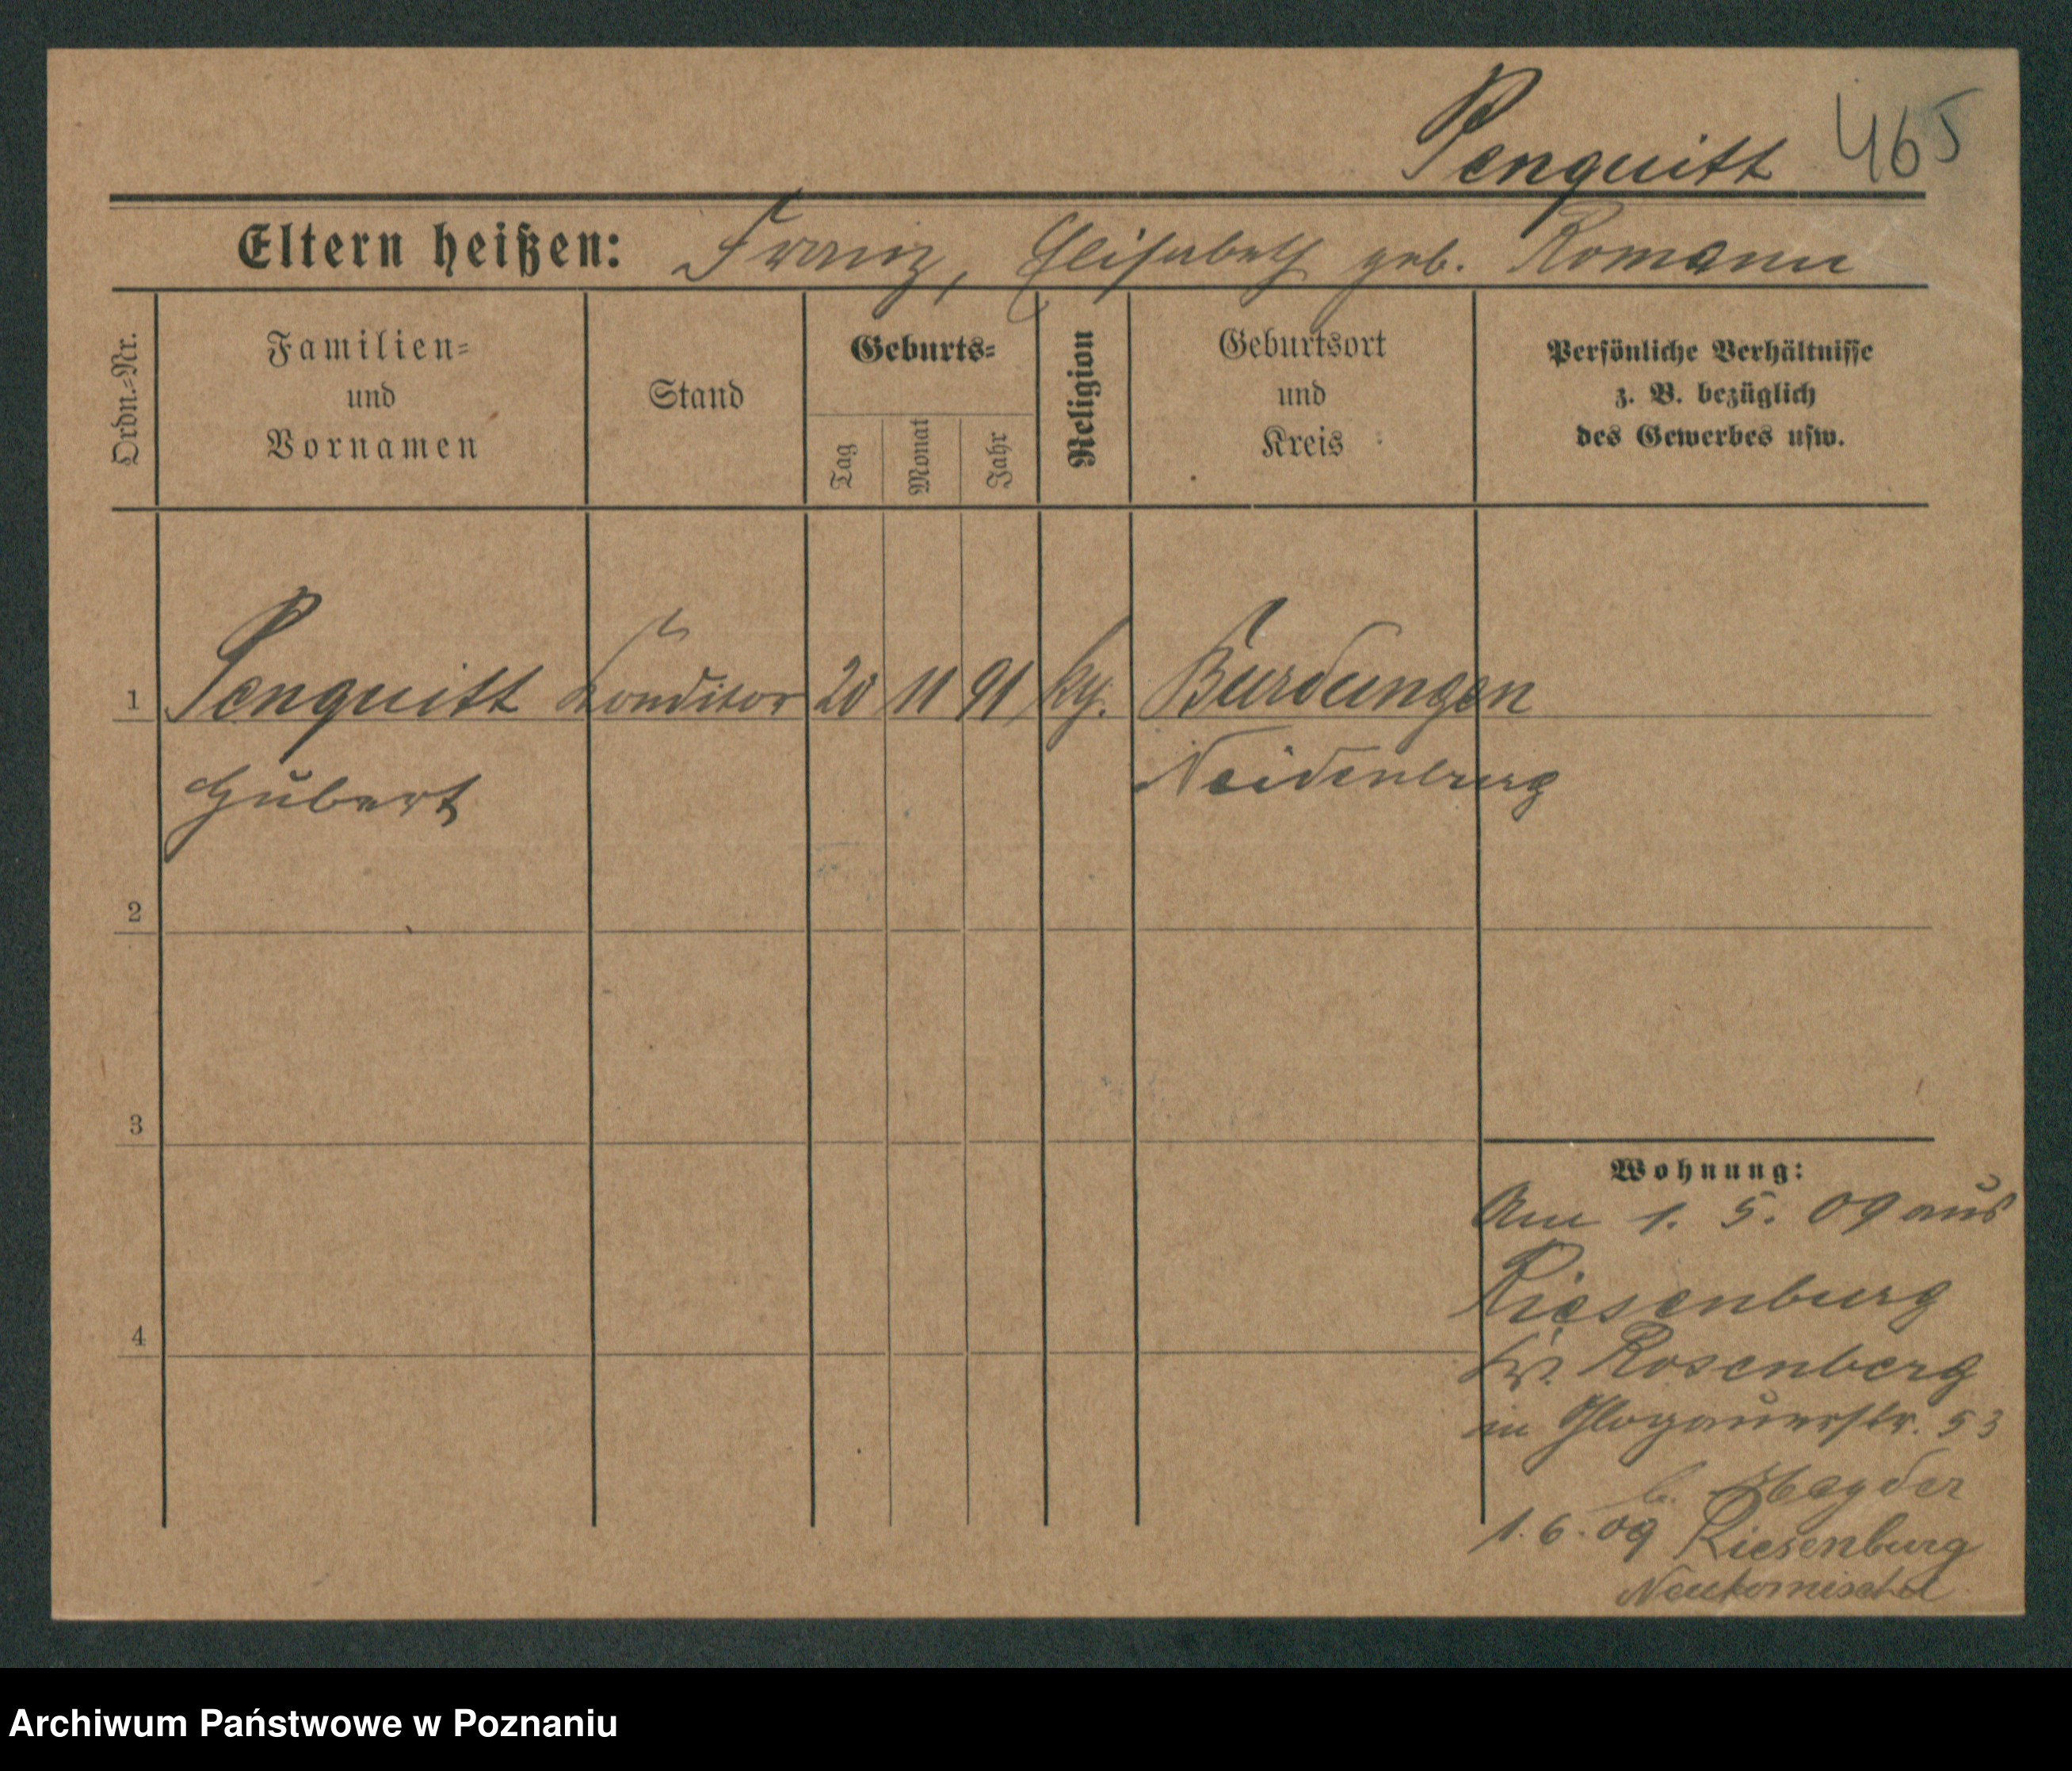 Penquitt 465
Eltern heißen: Franz, Elisabeth geb. Romann
Ordn.-Nr.
Familien-
und
Vornamen
Stand
Geburts-
Tag
Monat
Jahr
Religion
Geburtsort
und
Kreis
Persönliche Verhältnisse
z. B. bezüglich
des Gewerbes usw.
1 Penquitt Konditor 20 11 91 Burdungen
Hubert Neidenburg
2
3
4
Wohnung:
Am 1. 5. 09 aus
Riesenburg
Kr. Rosenberg
in Glogauerstr. 53
b.
1.6.09 Riesenburg
Archiwum Państwowe w Poznaniu